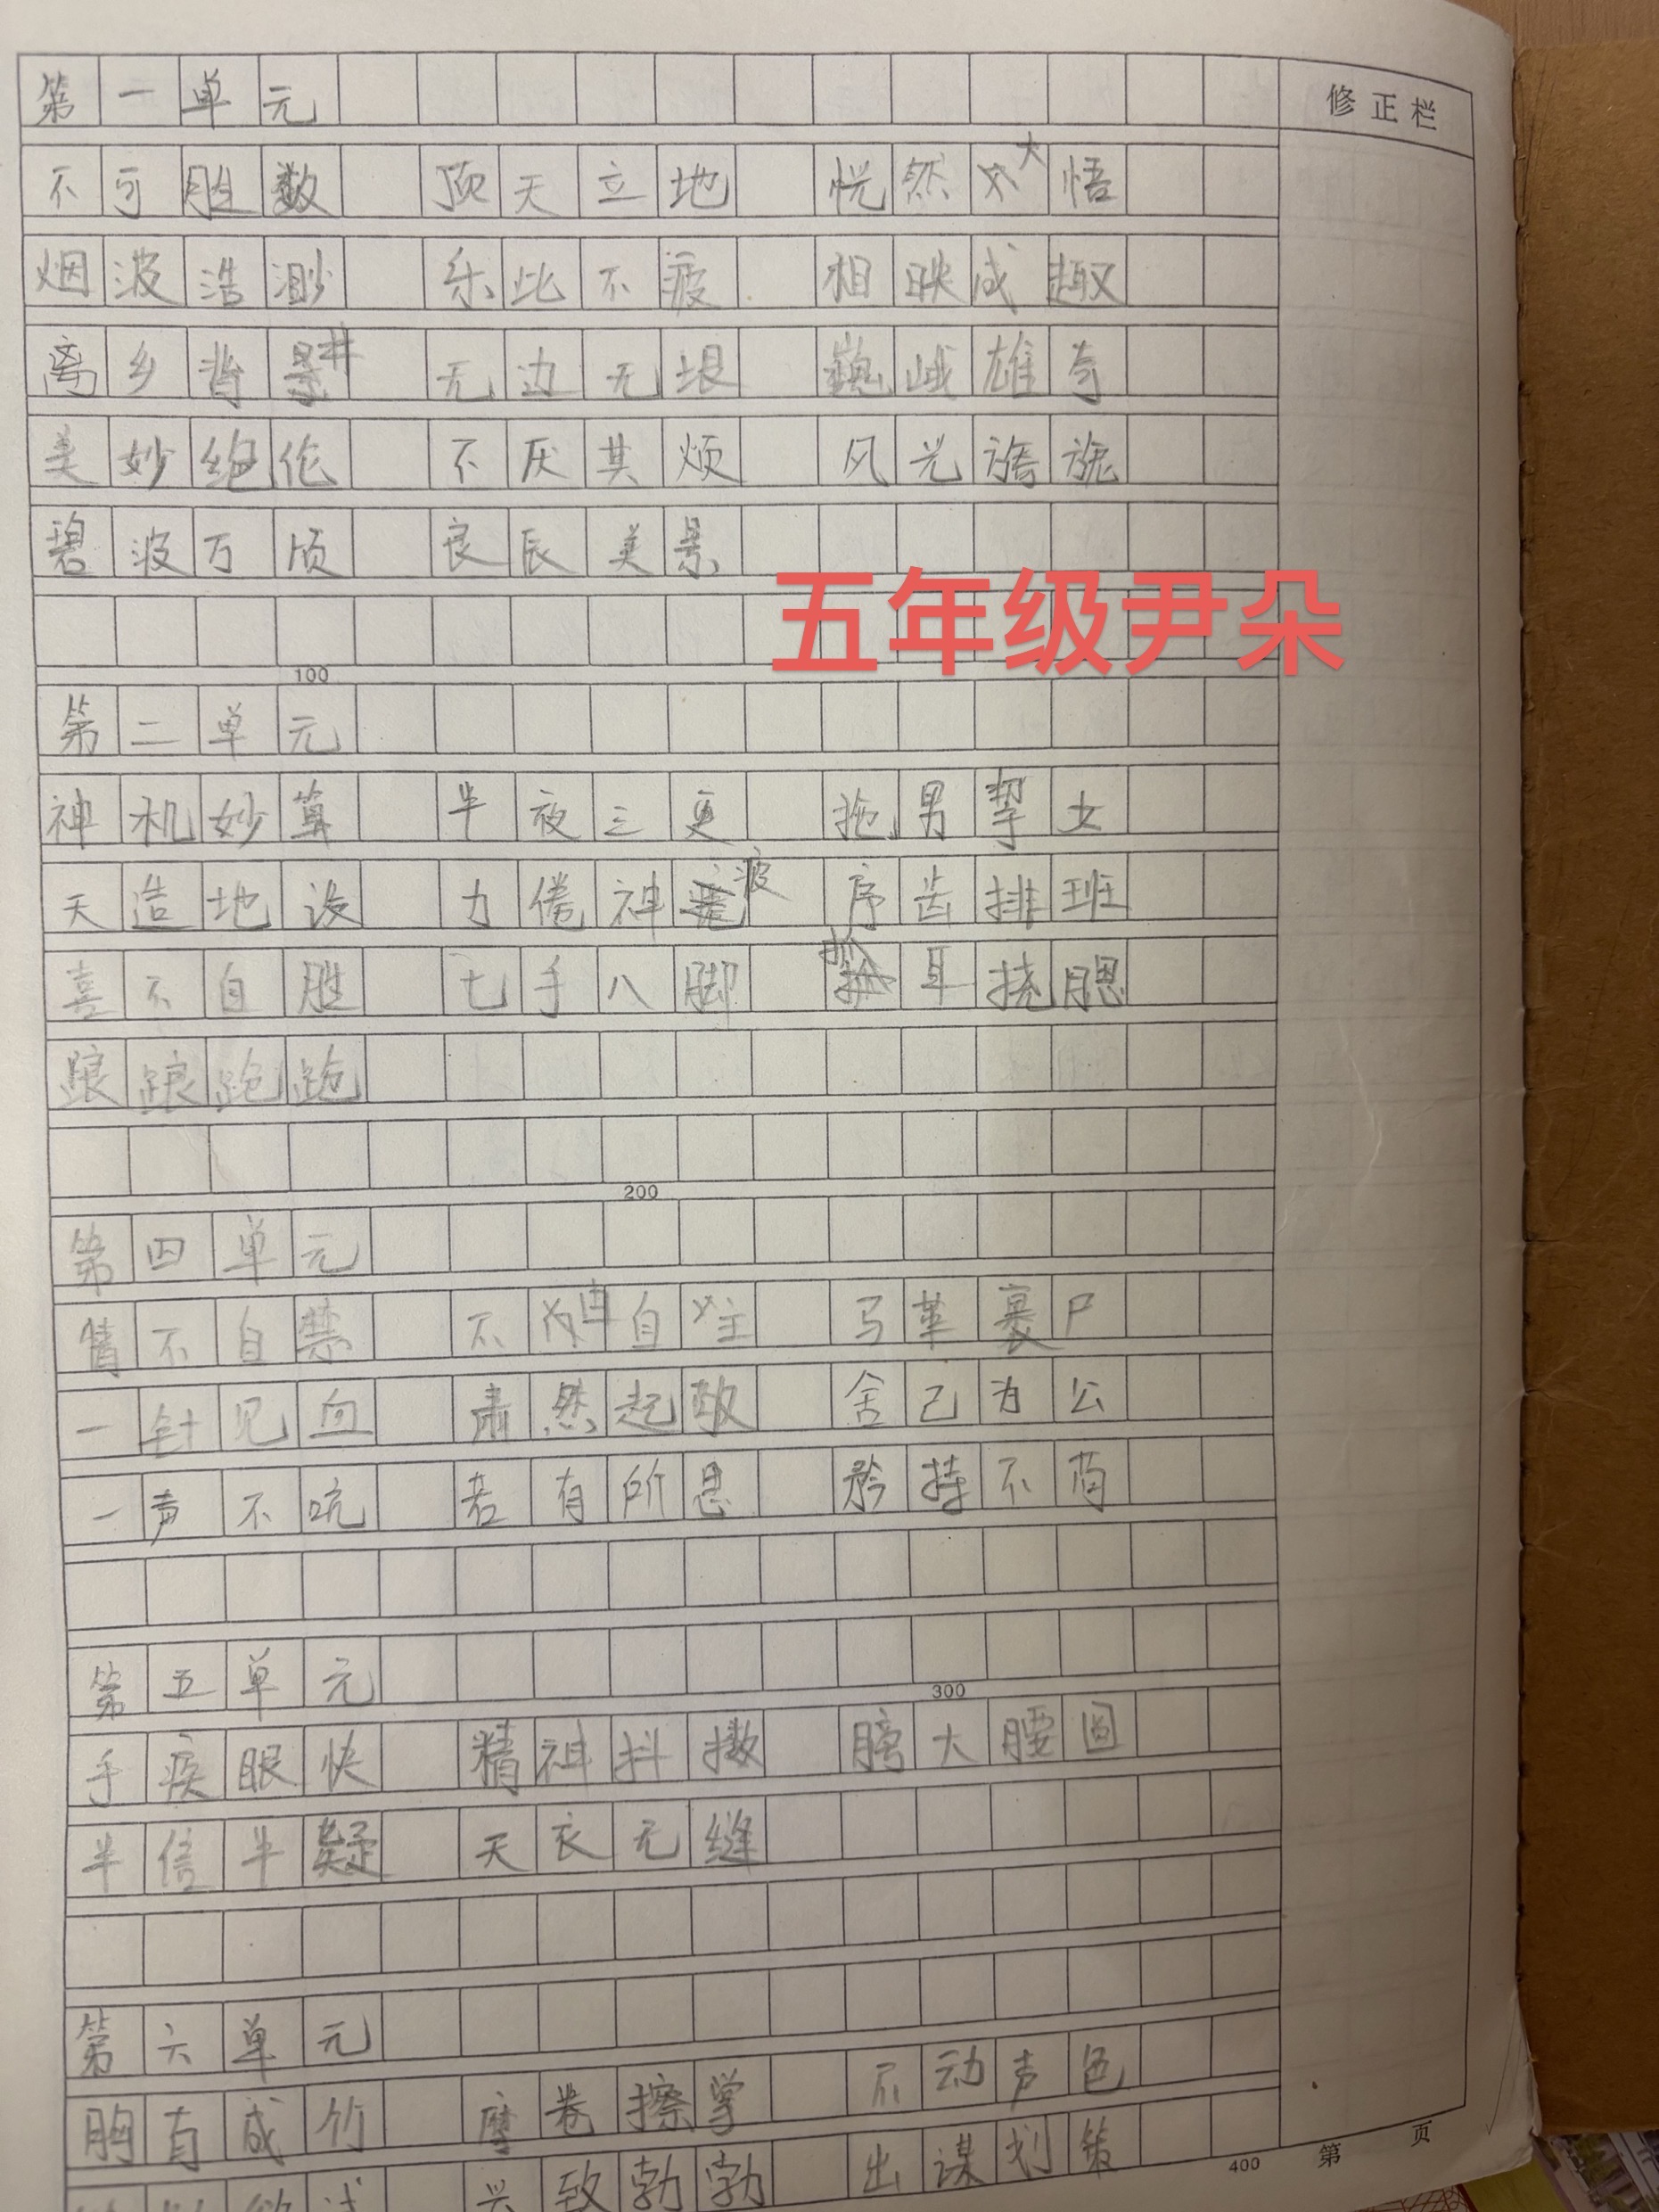 第一单元
修正栏
不可胜数 顶天立地 恍然大悟
烟波浩渺 乐此不疲 相映成趣
离乡背井 无边无垠 巍峨雄奇
美妙绝伦 不厌其烦 风光旖旎
碧波万顷 良辰美景
五年级尹朵
100
第二单元
神机妙算 半夜三更 拖男挈女
天造地设 力倦神疲 序齿排班
喜不自胜 七手八脚 扒耳挠腮
踉踉跄跄
200
第四单元
情不自禁 不由自主 马革裹尸
一针见血 肃然起敬 舍己为公
一声不吭 若有所思 矜持不苟
第五单元
300
手疾眼快 精神抖擞 膀大腰圆
半信半疑 天衣无缝
第六单元
胸有成竹 摩卷擦掌 不动声色
兴致勃勃 出谋划策
400 第 页